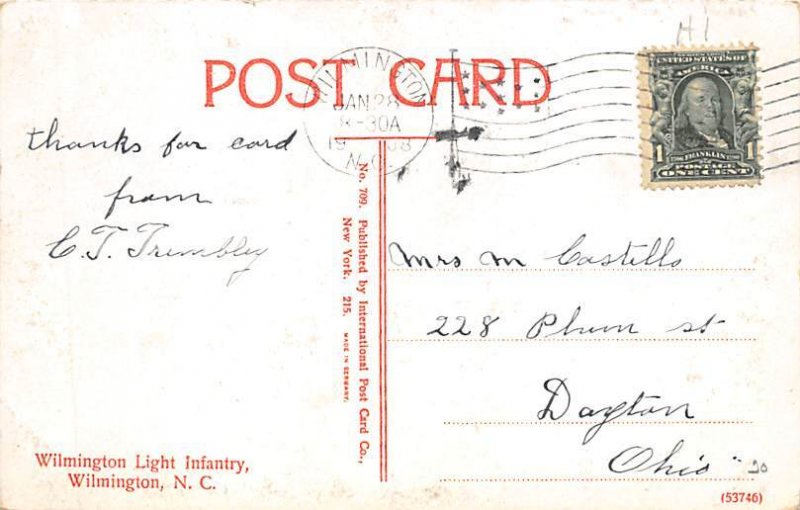 H1
POST CARD
WILMINGTON
JAN 28
8-30A
1908
N.C.
UNITED STATES OF
AMERICA
1 FRANKLIN 1
POSTAGE
ONE CENT
thanks for card
from
C. T. Trembley
No. 709. Published by International Post Card Co.,
New York. 215. MADE IN GERMANY.
Mrs M Castells
228 Plum st
Dayton
Ohio
20
Wilmington Light Infantry,
Wilmington, N. C.
(53746)